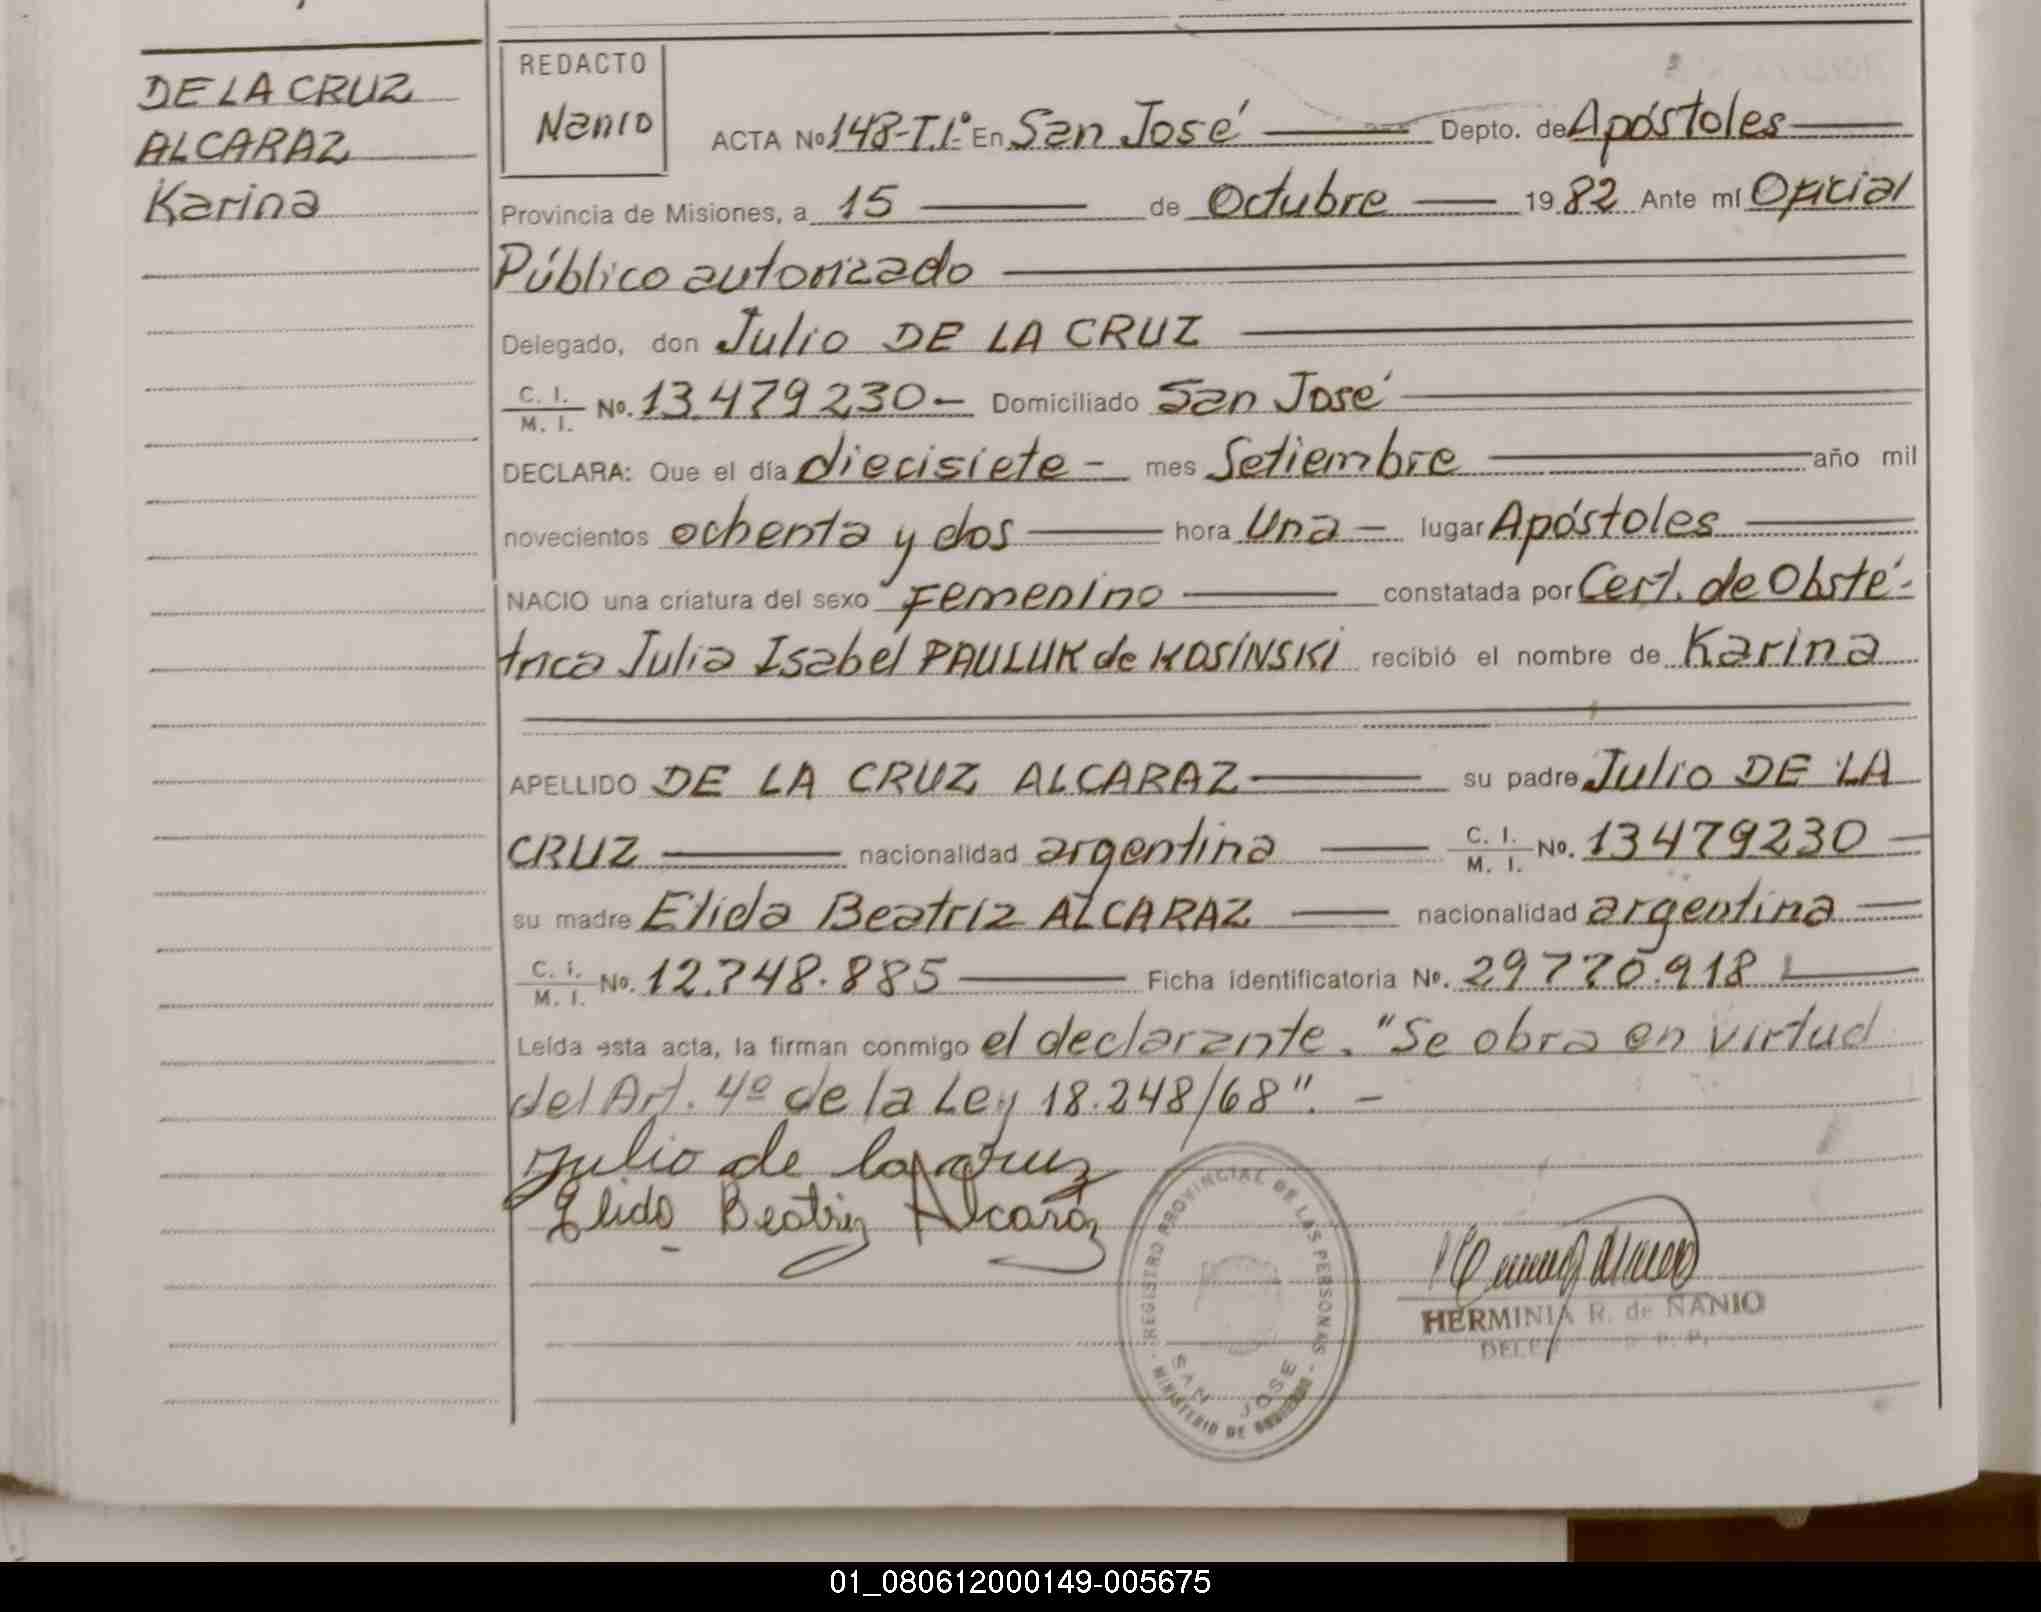 DE LA CRUZ
ALCARAZ
Karina
REDACTO
Nanio
ACTA Nº 148-T.1º- En San José Depto. de Apóstoles
Provincia de Misiones, a 15 de Octubre 1982 Ante mí Oficial
Público autorizado
Delegado, don Julio DE LA CRUZ
C. I. / M. I. Nº. 13.479230- Domiciliado San José
DECLARA: Que el día diecisiete - mes Setiembre año mil
novecientos ochenta y dos hora Una - lugar Apóstoles
NACIO una criatura del sexo Femenino constatada por Cert. de Obsté-
trica Julia Isabel PAULUK de KOSINSKI recibió el nombre de Karina
APELLIDO DE LA CRUZ ALCARAZ su padre Julio DE LA
CRUZ nacionalidad argentina C. I. / M. I. Nº. 13479230
su madre Elida Beatriz ALCARAZ nacionalidad argentina
C. I. / M. I. Nº. 12.748.885 Ficha identificatoria Nº. 29770.918
Leída esta acta, la firman conmigo el declarante. "Se obra en virtud
del Art. 4º de la Ley 18.248/68". -
Julio de la Cruz
Elida Beatriz Alcaraz
REGISTRO PROVINCIAL DE LAS PERSONAS
SAN JOSE
MINISTERIO DE GOBIERNO
HERMINIA R. de NANIO
01_080612000149-005675